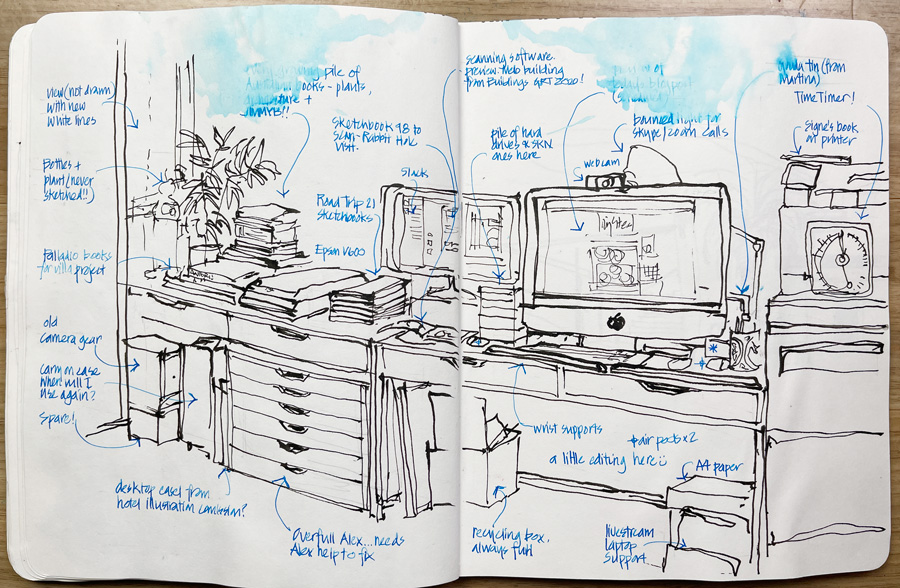 view (not drawn)
with new
white lines
Bottles +
plant (never
sketched!!)
palladio books
for villa project
old
camera gear
carry on case
when will I
use again?
Spare!
desktop easel from
hotel illustration
Overfull Alex...needs
Alex help to fix
pile of
books - plants,
+
sketchbook 98 to
scan - Rabbit Hole
visit.
Road Trip 21
sketchbooks
Epson V600
Slack
scanning software.
preview
building
from Buildings
2020!
pile of hard
drives
ones here
webcam
light for
skype/zoom calls
tin (from
Martina)
Time Timer!
Signe's book
on printer
wrist supports
air pods x 2
a little editing here
A4 paper
recycling box,
always full
livestream
laptop
support